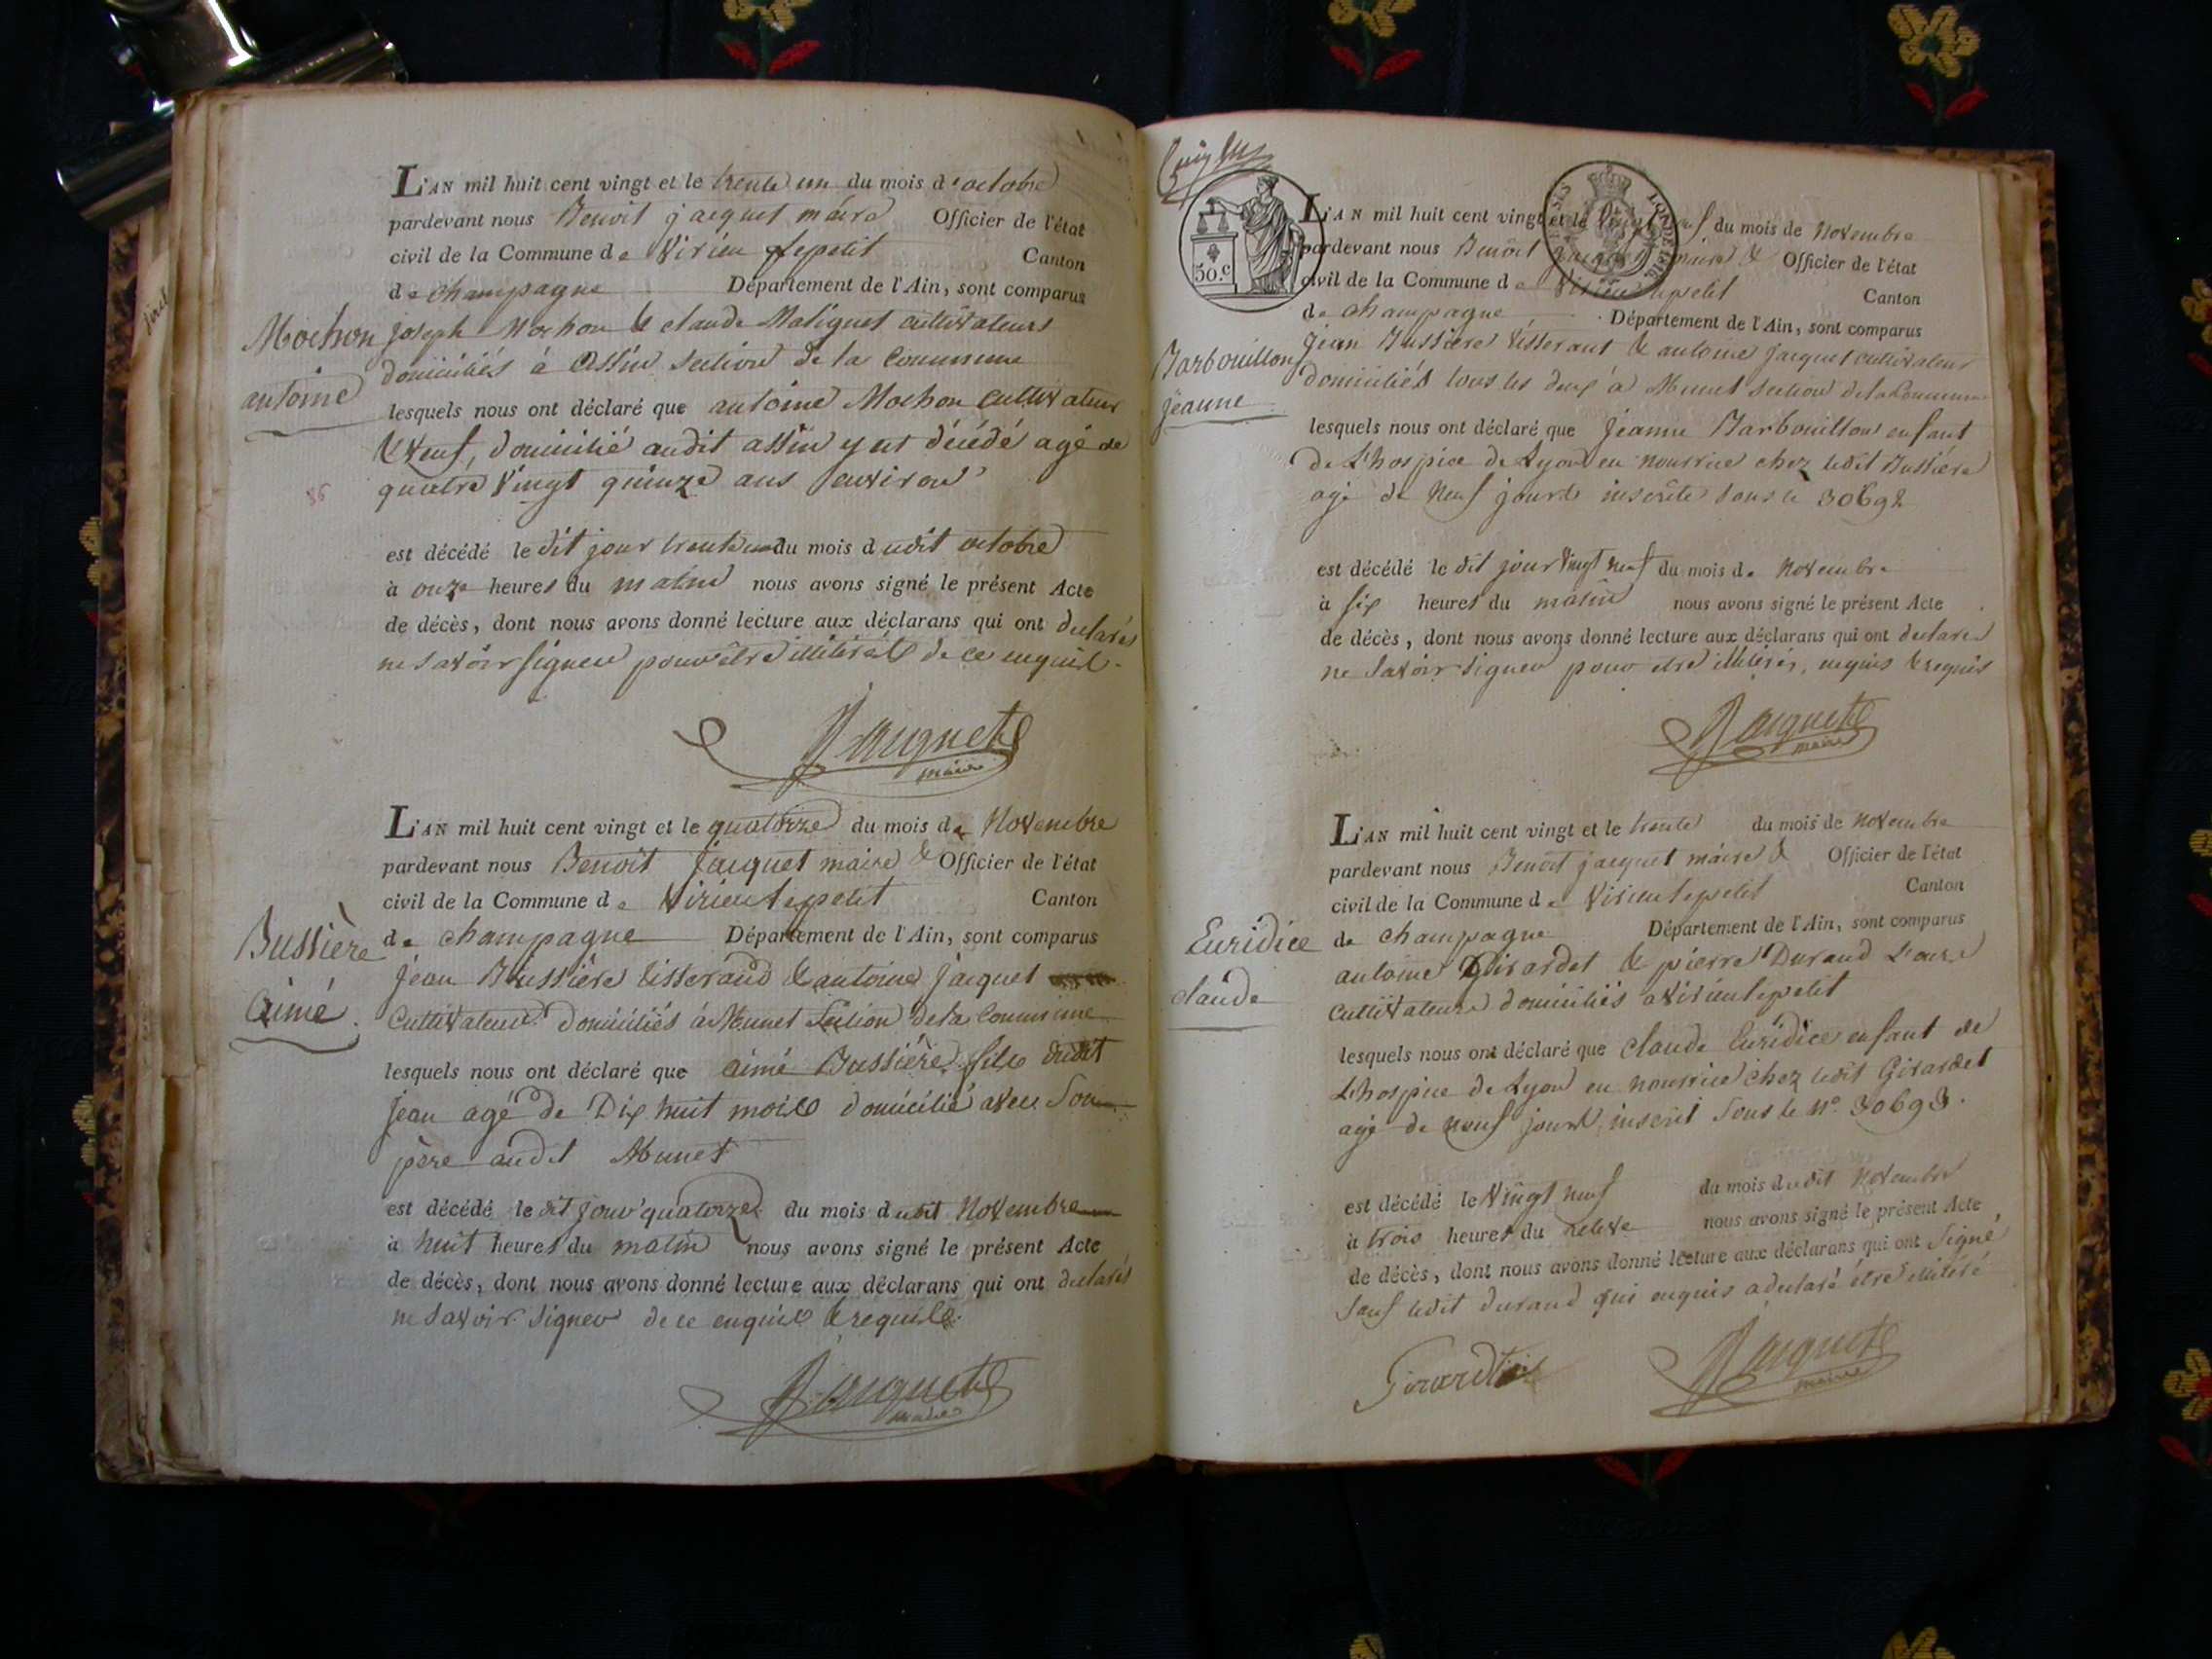 L'AN mil huit cent vingt et le trente un du mois d'octobre
pardevant nous Benoit jacquet maire Officier de l'état
civil de la Commune de Virieu lepetit Canton
de champagne Département de l'Ain, sont comparus
Mochon joseph Mochon & claude Maliquet cultivateurs
domiciliés à assin section de la Commune
antoine
lesquels nous ont déclaré que antoine Mochon cultivateur
veuf, domicilié audit assin y est décédé agé de
quatre vingt quinze ans environ
est décédé le dit jour trente un du mois dudit octobre
à onze heures du matin nous avons signé le présent Acte
de décès, dont nous avons donné lecture aux déclarans qui ont declarés
ne savoir signer pour être illiterés de ce enquis.
Jacquet
maire
L'AN mil huit cent vingt et le quatorze du mois de Novembre
pardevant nous Benoit jacquet maire & Officier de l'état
civil de la Commune de Virieu lepetit Canton
Bussière de champagne Département de l'Ain, sont comparus
jean Bussière tisserand & antoine jacquet
aimé cultivateur domiciliés à Munet section dela commune
lesquels nous ont déclaré que aimé Bussière fils dudit
jean agé de Dix huit mois domicilié avec son
père audit Munet
est décédé le dit jour quatorze du mois dudit Novembre
à huit heures du matin nous avons signé le présent Acte
de décès, dont nous avons donné lecture aux déclarans qui ont declarés
ne savoir signer de ce enquis & requis.
Jacquet
maire
30.c
L'AN mil huit cent vingt et le vingt neuf du mois de Novembre
pardevant nous Benoit jacquet maire & Officier de l'état
civil de la Commune de Virieu lepetit Canton
de champagne Département de l'Ain, sont comparus
Barbouillon jean Bussière tisserant & antoine jacquet cultivateur
domiciliés tous les deux à Munet section dela Commune
jeanne
lesquels nous ont déclaré que jeanne Barbouillon enfant
de L'hospice de Lyon en nourrice chez ledit Bussière
agé de neuf jours inscrite sous le 30692
est décédé le dit jour vingt neuf du mois de Novembre
à six heures du matin nous avons signé le présent Acte
de décès, dont nous avons donné lecture aux déclarans qui ont declarés
ne savoir signer pour etre illiterés, enquis & requis
Jacquet
maire
L'AN mil huit cent vingt et le trente du mois de Novembre
pardevant nous Benoit jacquet maire & Officier de l'état
civil de la Commune de Virieu lepetit Canton
Euridice de champagne Département de l'Ain, sont comparus
antoine Girardet & pierre Durand
claude cultivateurs domiciliés a virieu lepetit
lesquels nous ont déclaré que claude Euridice enfant de
L'hospice de Lyon en nourrice chez ledit Girardet
agé de neuf jours, inscrit sous le N° 30693.
est décédé le vingt neuf du mois dudit Novembre
à trois heures du releve nous avons signé le présent Acte
de décès, dont nous avons donné lecture aux déclarans qui ont signé
sauf ledit durand qui enquis a declaré être illiteré
Jacquet
maire